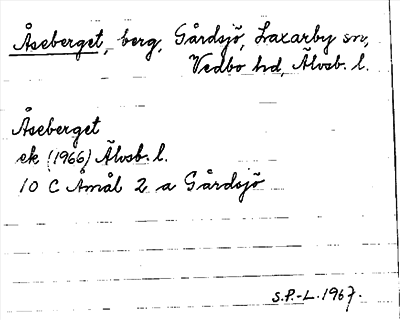 Åseberget, berg, Gårdsjö, Laxarby sn,
Vedbo hd, Älvsb. l.
Åseberget
ek (1966) Älvsb. l.
10 C Åmål 2 a Gårdsjö
S.P.-L. 1967.